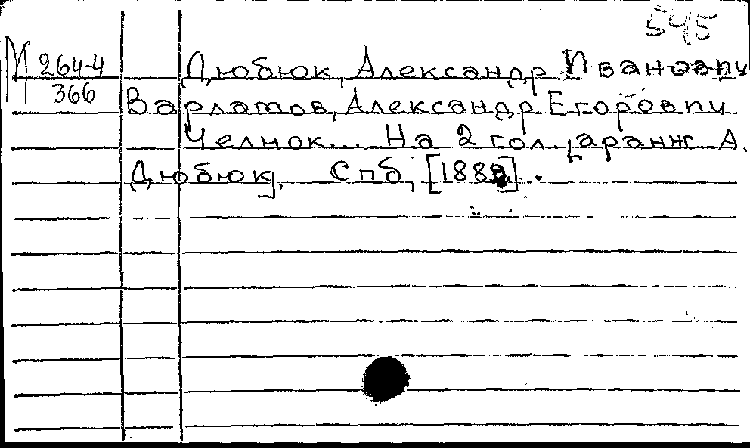 545
М 264-4 Дюбюк, Александр Иванович
366 Варламов, Александр Егорович
Челнок... На 2 гол., аранж. А.
Дюбюк. Спб,